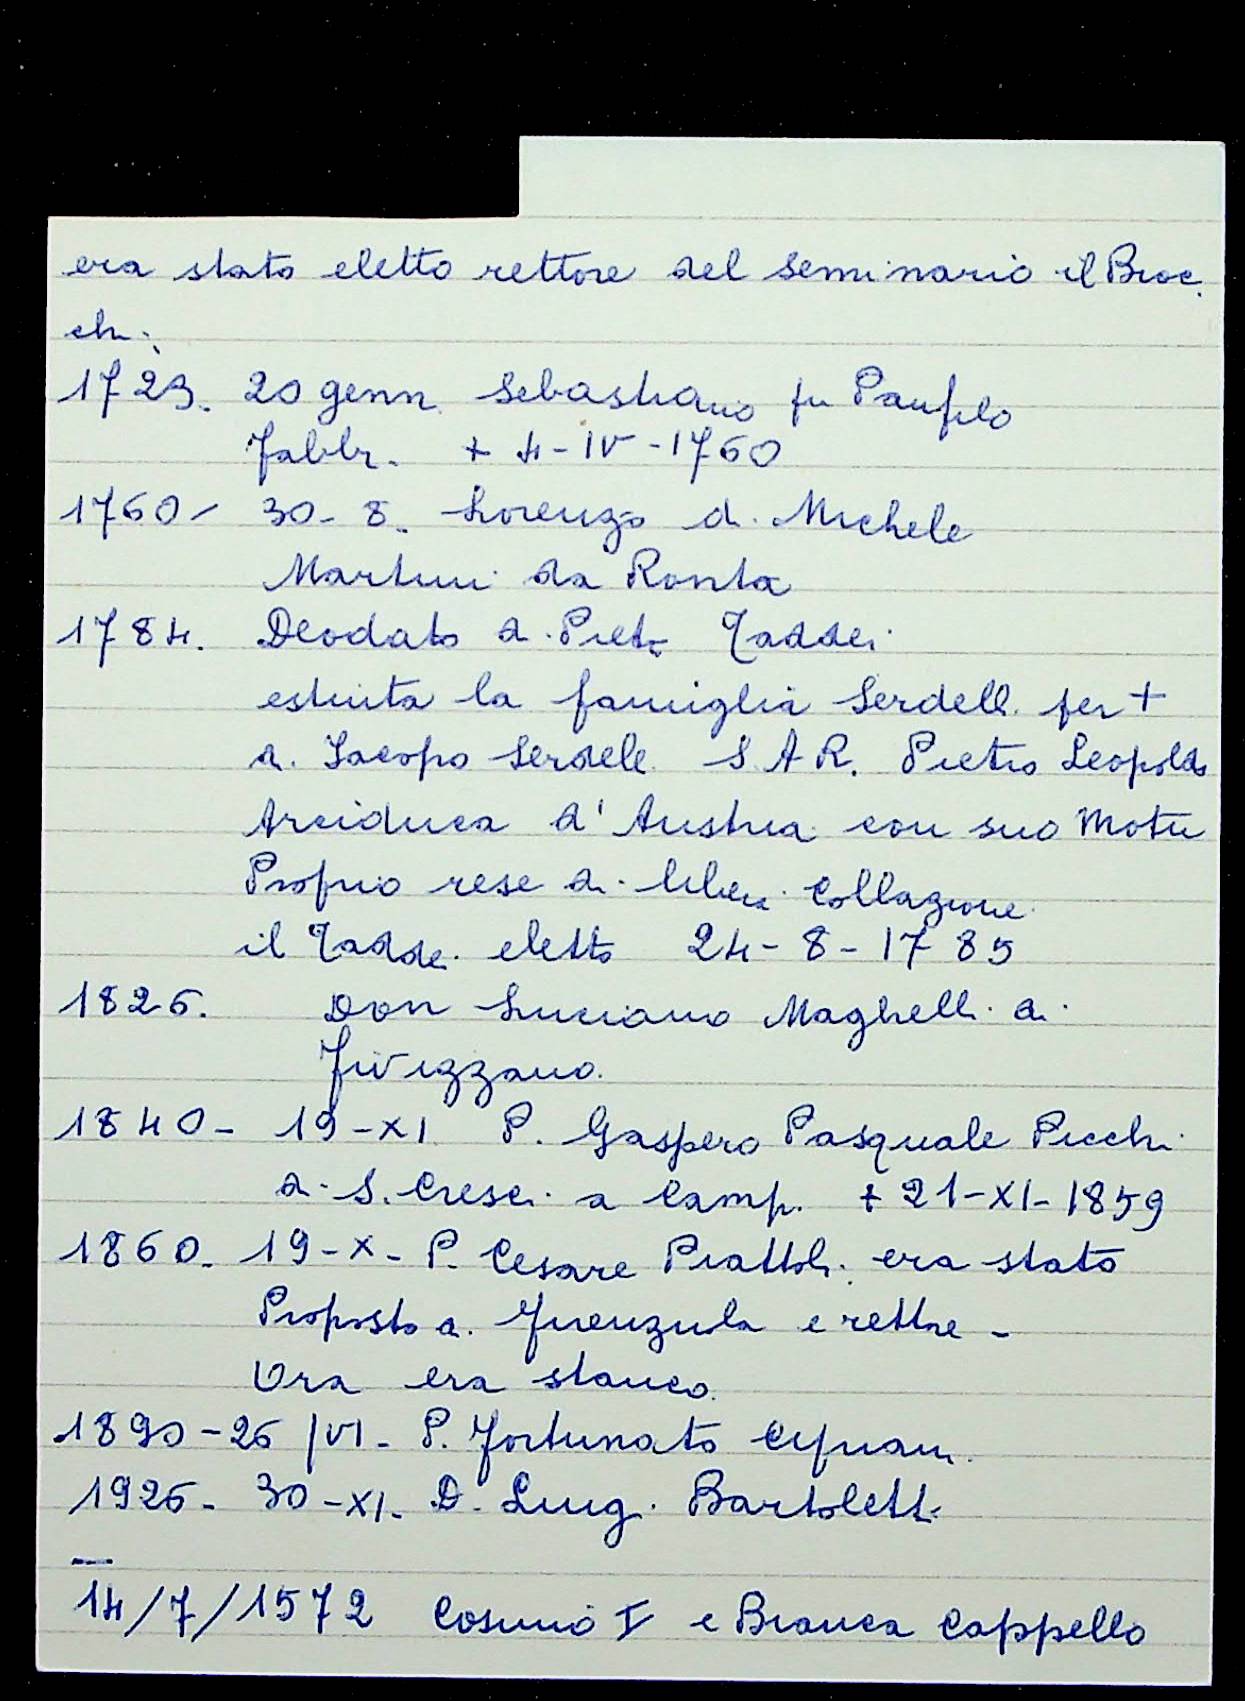 era stato eletto rettore del Seminario il Broc.
chi.
1723. 20 genn. Sebastiano fu Panfilo
Fabbr. + 4-IV-1760
1760- 30-8. Lorenzo di Michele
Martini da Ronta
1784. Deodato di Pietr Taddei
estinta la famiglia Serdell. per +
di Jacopo Serdeli S.A.R. Pietro Leopoldo
Arciduca d'Austria con suo Motu
Proprio rese di libera Collazione
il Taddei eletto 24-8-1785
1826. Don Luciano Maghelli di
Fivizzano.
1840- 19-XI. P. Gaspero Pasquale Picchi
di S. Cresci a Camp. + 21-XI-1859
1860. 19-X- P. Cesare Piattoli era stato
Proposto a Firenzuola e rettore -
Ora era stanco.
1890-26/VI- P. Fortunato Cipriani.
1926- 30-XI. D. Luigi Bartoletti
14/7/1572 Cosimo I e Bianca Cappello